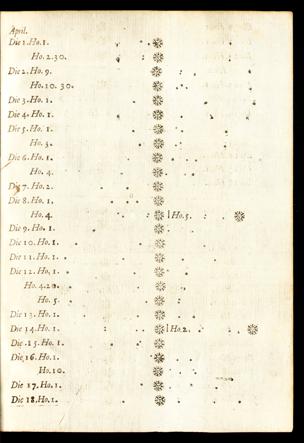 April.
Die 1. Ho. 1.
Ho. 2. 30.
Die 2. Ho. 9.
Ho. 10. 30.
Die 3. Ho. 1.
Die 4. Ho. 1.
Die 5. Ho. 1.
Ho. 3.
Die 6. Ho. 1.
Ho. 4.
Die 7. Ho. 2.
Die 8. Ho. 1.
Ho. 4. Ho. 5.
Die 9. Ho. 1.
Die 10. Ho. 1.
Die 11. Ho. 1.
Die 12. Ho. 1.
Ho. 4. 20.
Ho. 5.
Die 13. Ho. 1.
Die 14. Ho. 1. Ho. 2.
Die .15. Ho. 1.
Die, 16. Ho. 1.
Ho. 10.
Die 17. Ho. 1.
Die 18. Ho. 1.